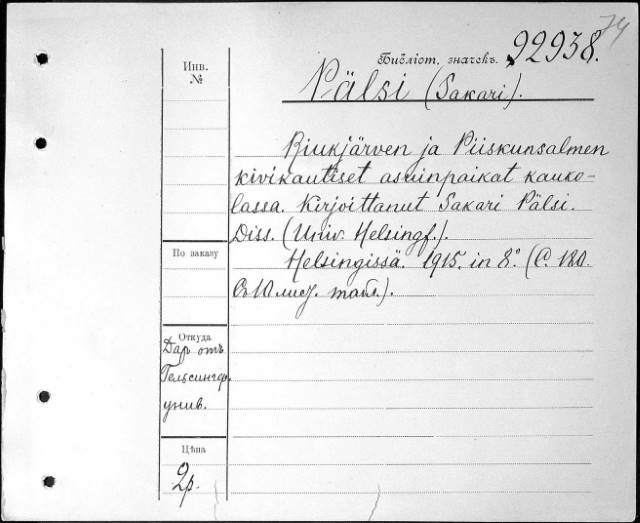 74
Библіот. значекъ. 92938.
Инв.
№
Pälsi (Sakari).
Riukjärven ja Piiskunsalmen
kivikautiset asuinpaikat kauko-
lassa. Kirjoittanut Sakari Pälsi.
Diss. (Univ. Helsingf.).
По заказу
Helsingissä. 1915. in 8.° (С. 180.
Съ 10 лист. табл.).
Откуда
Даръ отъ
Гельсингф.
унив.
Цѣна
2р.